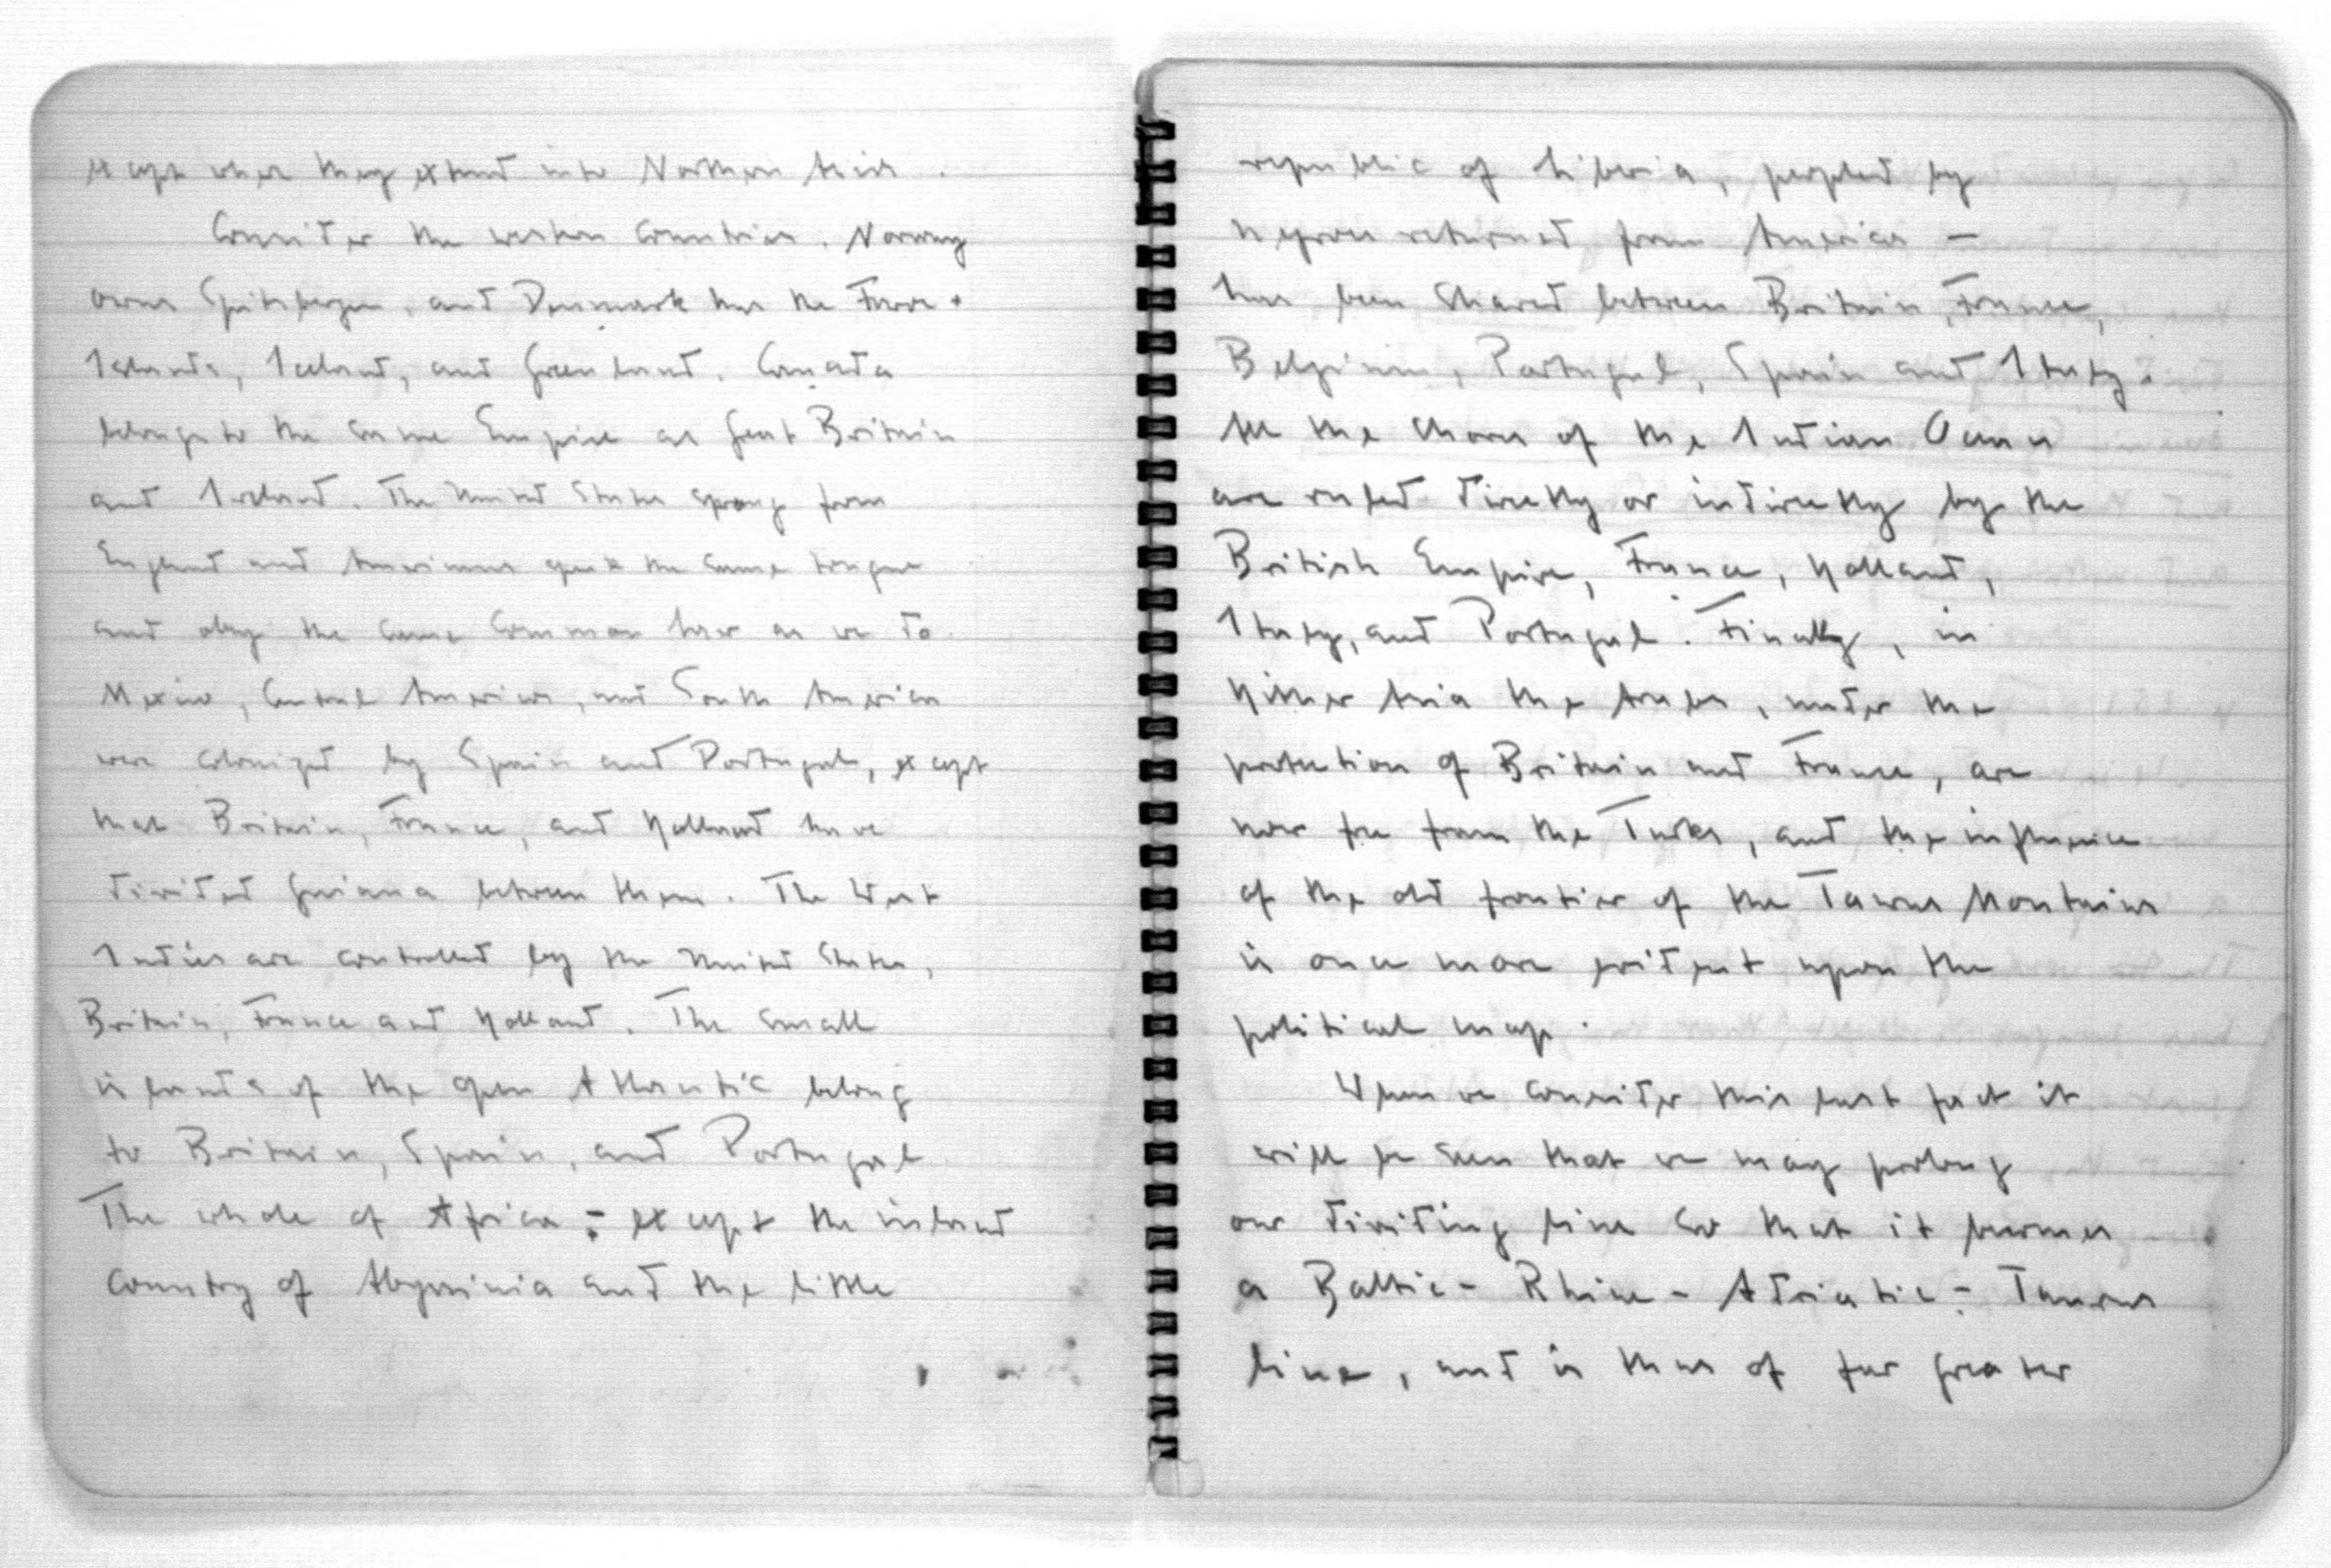 except where they extend into Northern Asia.
Consider the western countries. Norway
owns Spitsbergen, and Denmark has the Faroe
Islands, Iceland, and Greenland. Canada
belongs to the same Empire as Great Britain
and Ireland. The United States sprang from
England and Americans speak the same tongue
and obey the same Common Law as we do.
Mexico, Central America, and South America
were colonized by Spain and Portugal, except
that Britain, France, and Holland have
divided Guiana between them. The West
Indies are controlled by the United States,
Britain, France and Holland. The small
islands of the open Atlantic belong
to Britain, Spain, and Portugal.
The whole of Africa - except the inland
country of Abyssinia and the little
republic of Liberia, peopled by
negroes returned from America -
has been shared between Britain, France,
Belgium, Portugal, Spain and Italy.
All the shores of the Indian Ocean
are ruled directly or indirectly by the
British Empire, France, Holland,
Italy, and Portugal. Finally, in
Hither Asia the Arabs, under the
protection of Britain and France, are
now free from the Turks, and the influence
of the old frontier of the Taurus Mountains
is once more evident upon the
political map.
When we consider this last fact it
will be seen that we may prolong
our dividing line so that it becomes
a Baltic - Rhine - Adriatic - Taurus
line, and is thus of far greater